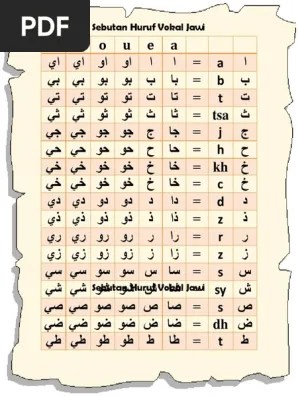 PDF
Sebutan Huruf Vokal Jawi
o u e a
ا a = ا ا او او اي اي
ب b = با ب بو بو بي بي
ت t = تا ت تو تو تي تي
ث tsa = ثا ث ثو ثو ثي ثي
ج j = جا ج جو جو جي جي
ح h = حا ح حو حو حي حي
خ kh = خا خ خو خو خي خي
خ c = خا خ خو خو خي خي
د d = دا د دو دو دي دي
ذ z = ذا ذ ذو ذو ذي ذي
ر r = را ر رو رو ري ري
ز z = زا ز زو زو زي زي
س s = سا س سو سو سي سي
Sebutan Huruf Vokal Jawi
ش sy شي شي
ص s = صا ص صو صو صي صي
ض dh = ضا ض ضو ضو ضي ضي
ط t = طا ط طو طو طي طي